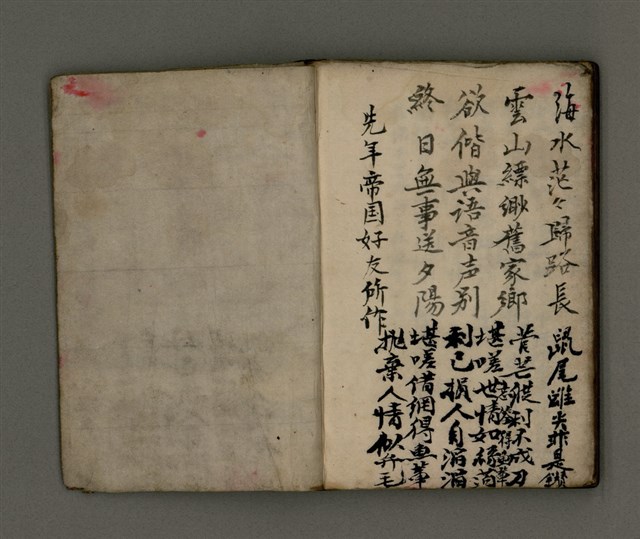 海水茫々歸路長
雲山縹緲舊家鄉
欲偕與語音声別
終日無事送夕陽
先年帝国好友所作
鼠尾雖尖非是鑽
菅芒縱利不成刀
堪嗟世情如
利己損人自滔滔
堪嗟借網得魚
拋棄人情似毛